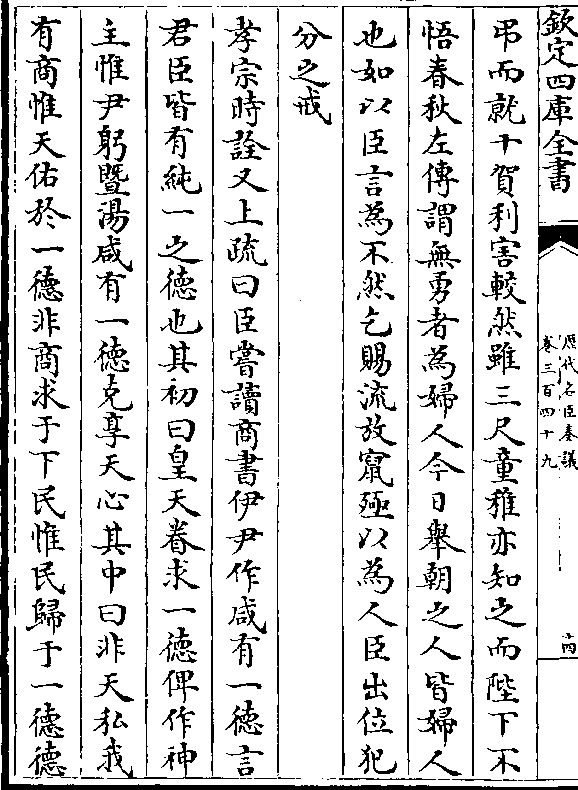 欽定四庫全書
歴代名臣奏議
卷三百四十九
十四
弔而就十賀利害較然雖三尺童稚亦知之而陛下不
悟春秋左傳謂無勇者為婦人今日舉朝之人皆婦人
也如以臣言為不然乞賜流放竄殛以為人臣出位犯
分之戒
孝宗時詮又上疏曰臣嘗讀商書伊尹作咸有一德言
君臣皆有純一之德也其初曰皇天眷求一德俾作神
主惟尹躬暨湯咸有一德克享天心其中曰非天私我
有商惟天佑於一德非商求于下民惟民歸于一德德